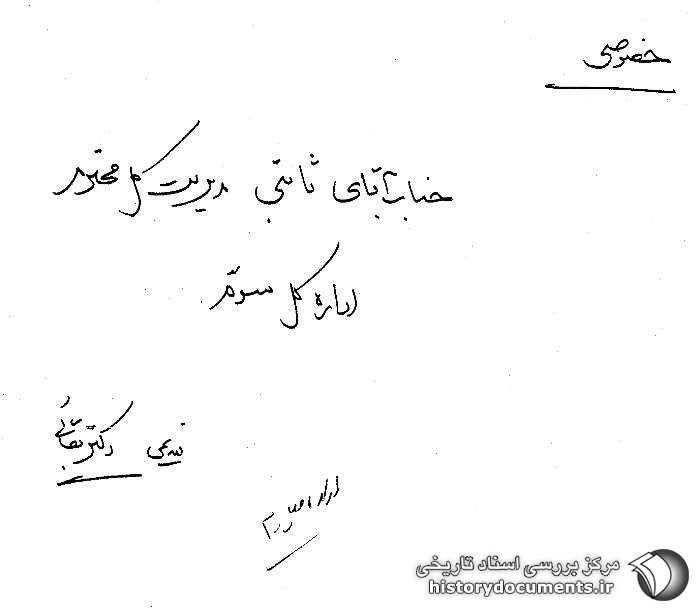 خصوصی
جناب آقای ثابتی مدیریت کل محترم
اداره کل سوم
تقدیمی دکتر بقائی
مرکز بررسی اسناد تاریخی
historydocuments.ir